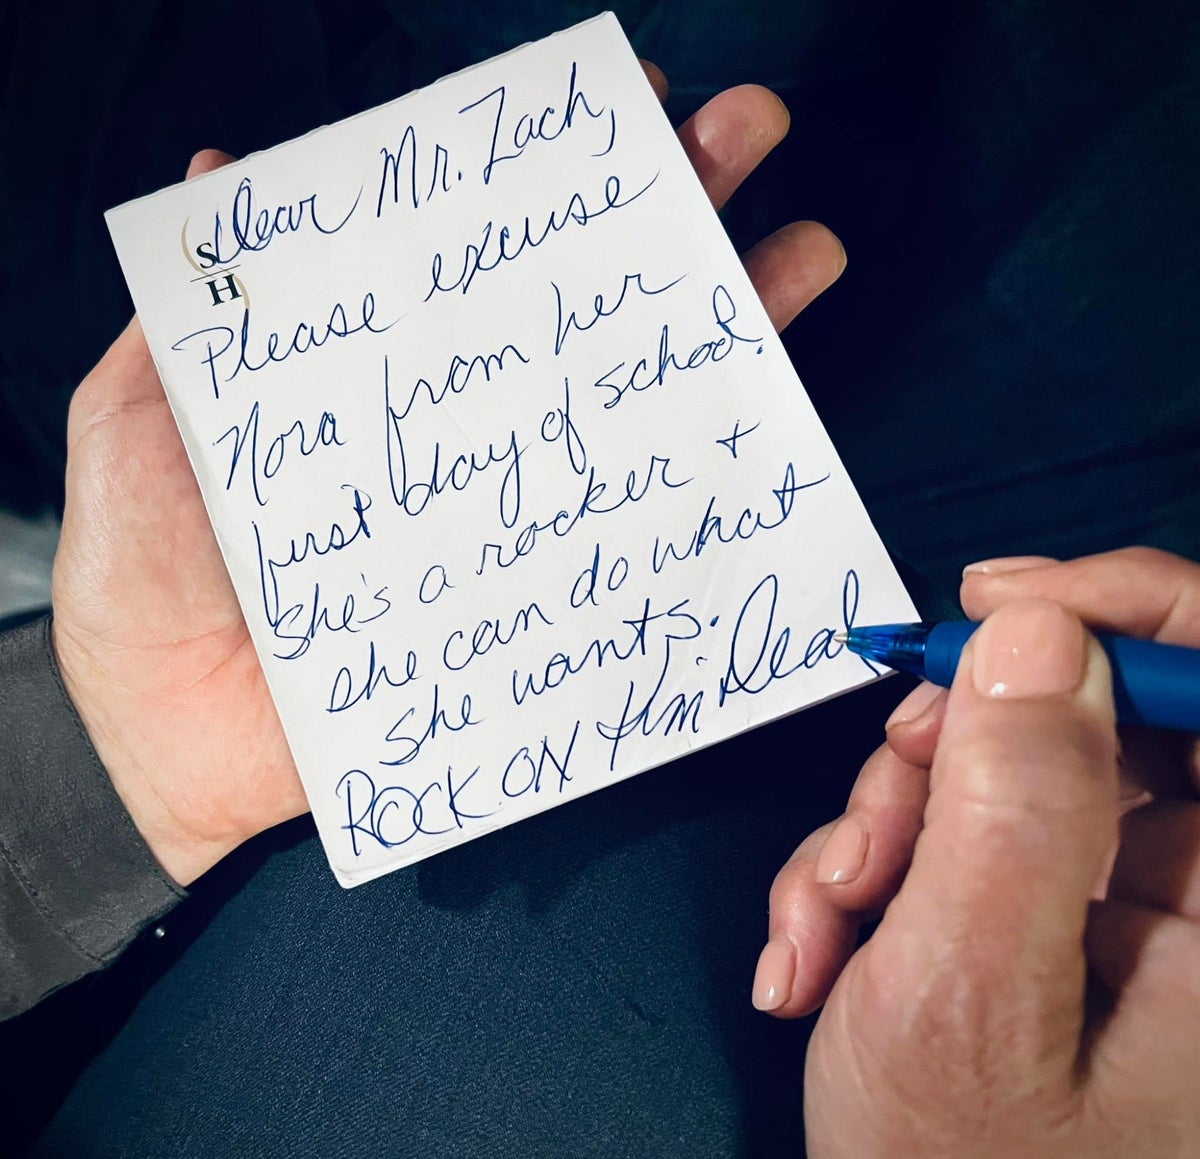 Dear Mr. Zach,
S
H
Please excuse
Nora from her
first day of school.
She's a rocker +
she can do what
she wants.
ROCK ON Kim Deal